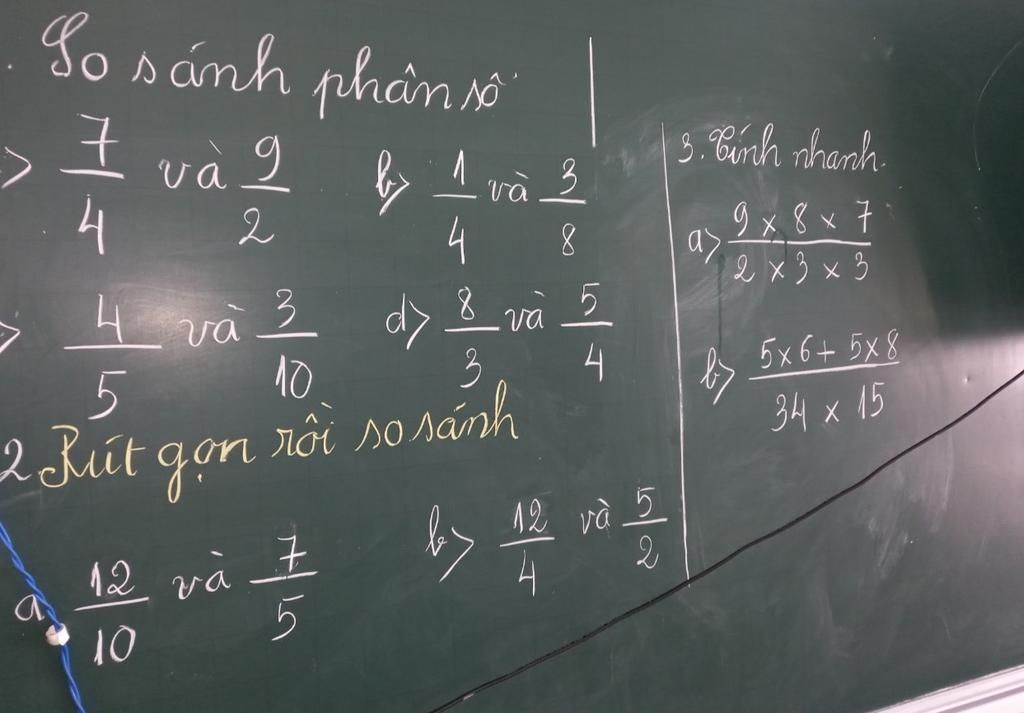 . So sánh phân số
> 7/4 và 9/2 b> 1/4 và 3/8
> 4/5 và 3/10 d> 8/3 và 5/4
2. Rút gọn rồi so sánh
a 12/10 và 7/5 b> 12/4 và 5/2
3. Tính nhanh.
a> 9 x 8 x 7 / 2 x 3 x 3
b> 5x6 + 5x8 / 34 x 15